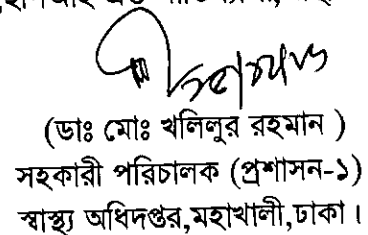 (ডাঃ মোঃ খলিলুর রহমান )
সহকারী পরিচালক (প্রশাসন-১)
স্বাস্থ্য অধিদপ্তর,মহাখালী,ঢাকা।